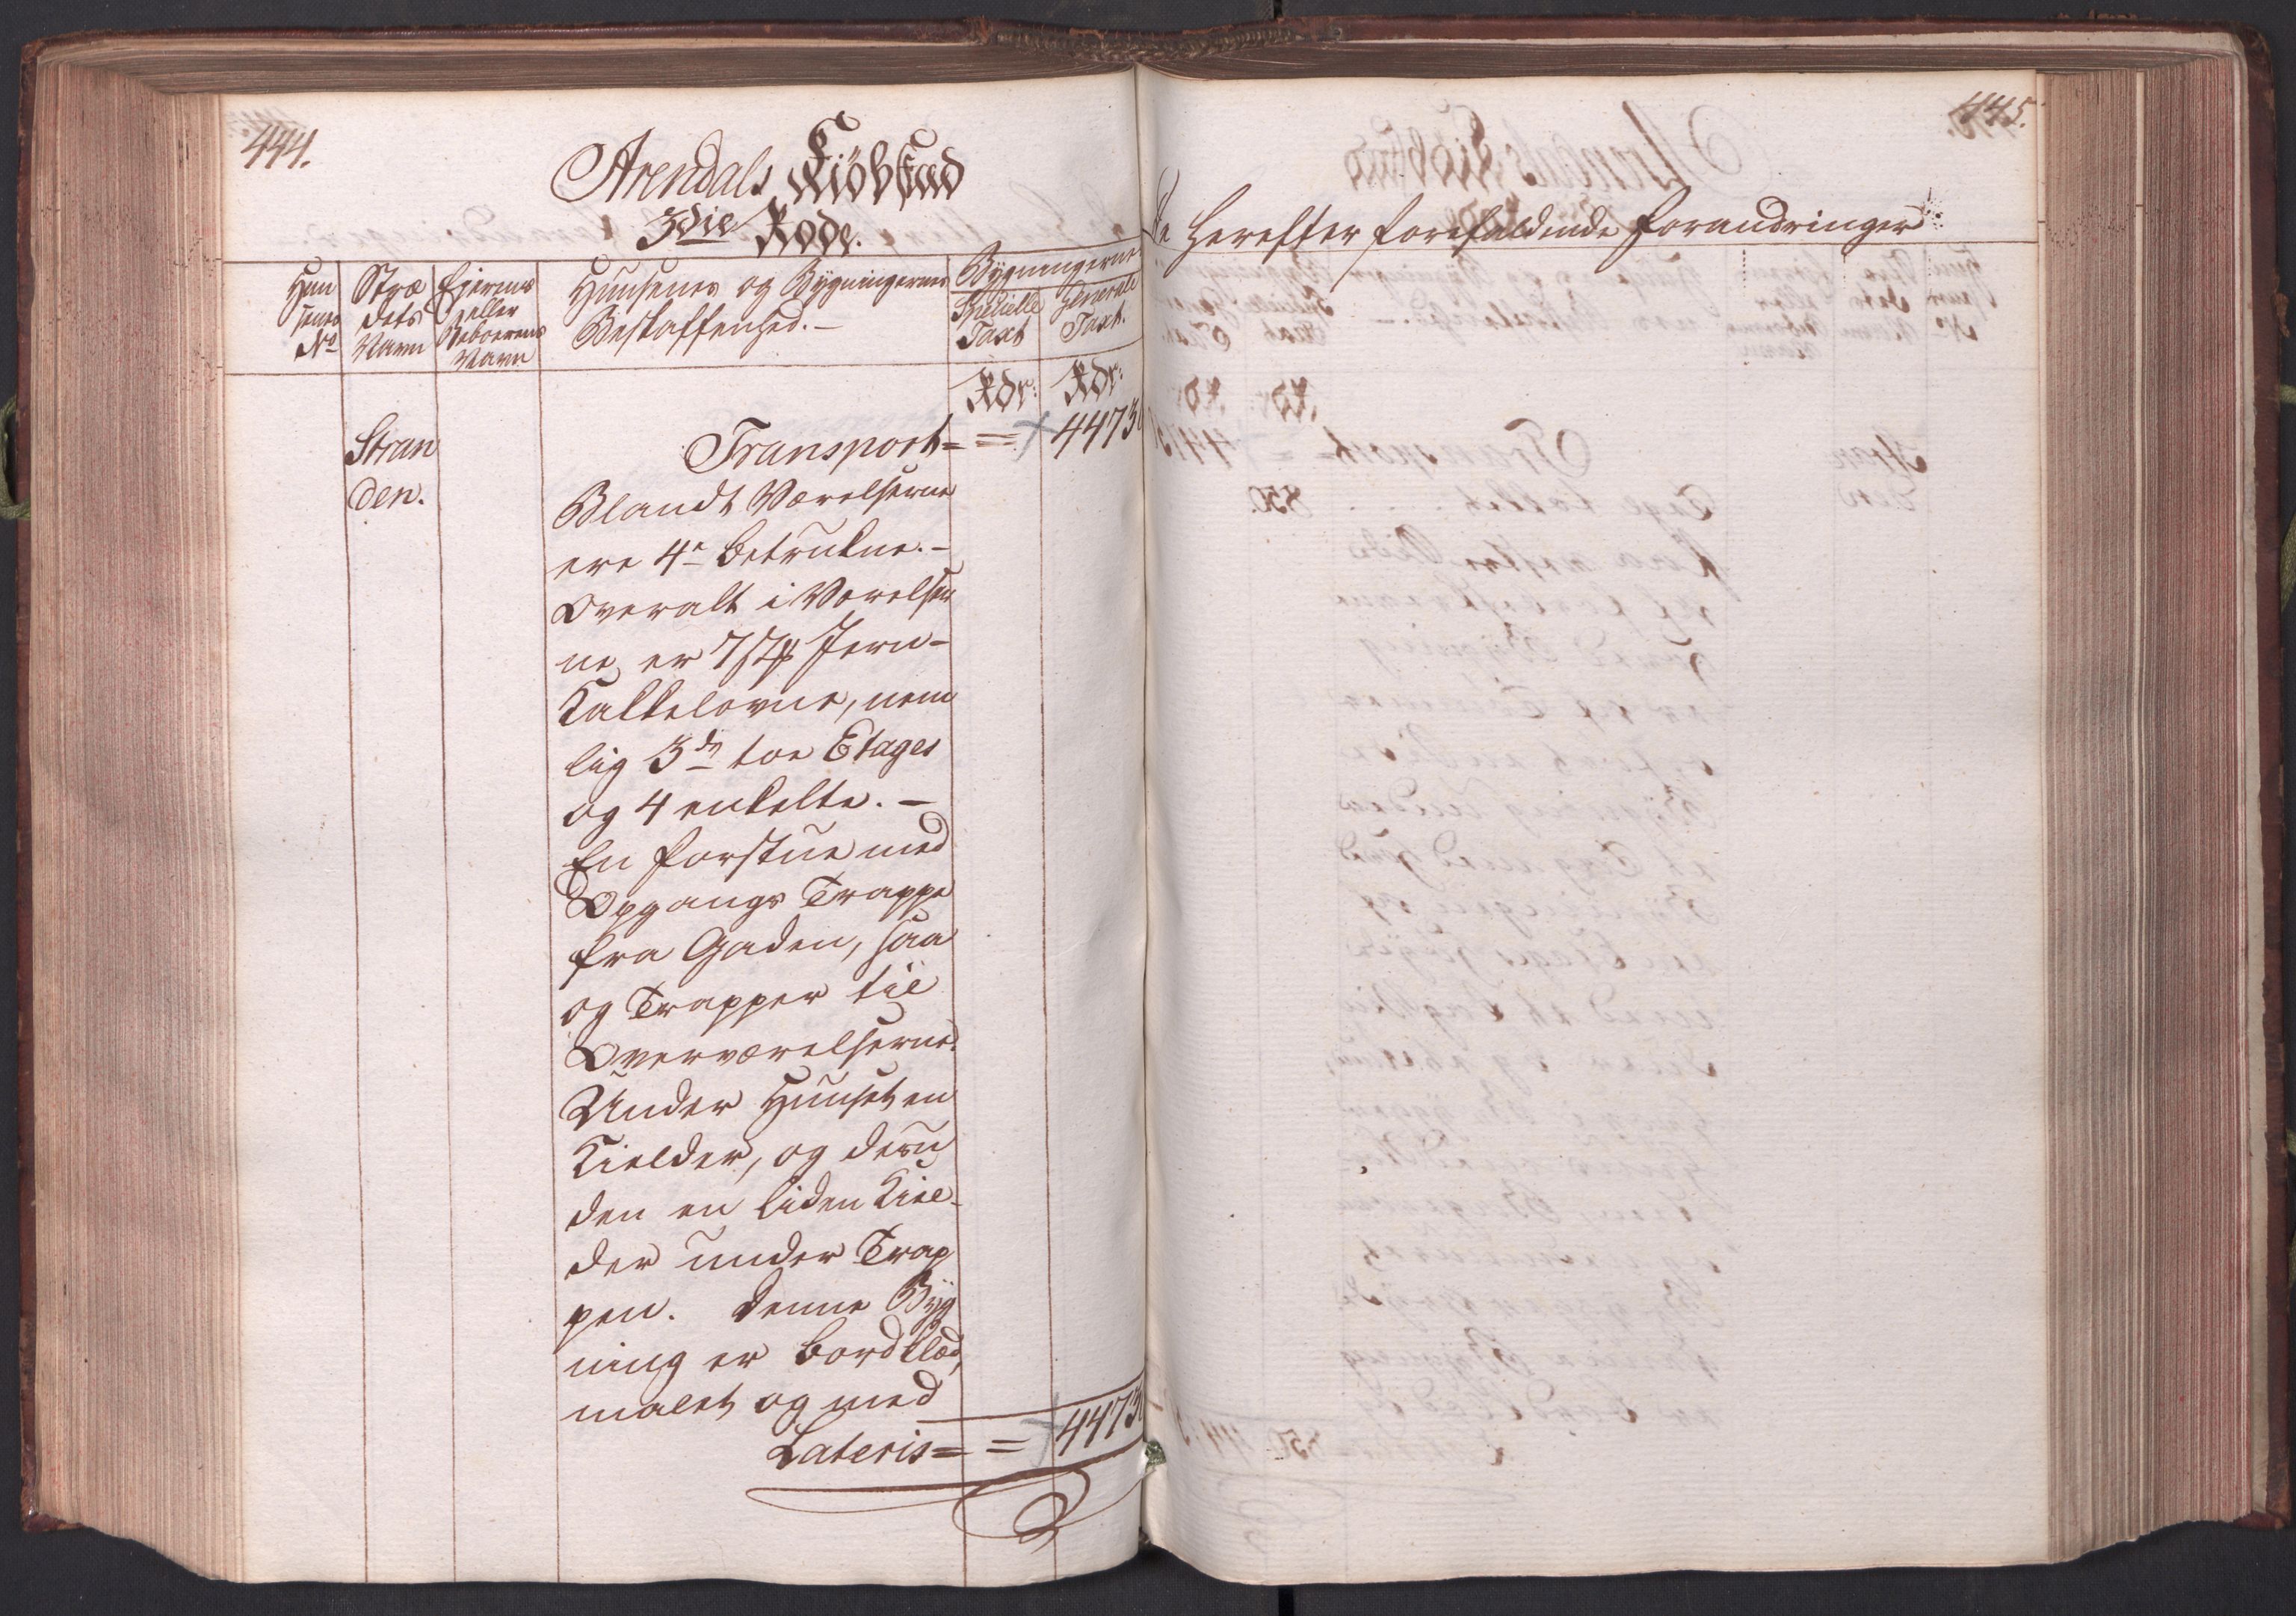 444.
Arendals Kiöbstad
3die Rode.
Huu
senes
No
Stræ
dets
Navn
Ejernes
eller
Beboernes
Navn
Huusenes og Bygningernes
Beskaffenhed. –
Bygningerne
Specielle
Taxt
Generale
Taxt.
Rdr:
Rdr:
Stran
den.
Transport = = 44730
Blandt Værelserne
ere 4re betrukne. –
Overalt i Værelser
ne er 7 Jern-
Kakkelovne, nem
lig 3de toe Etages
og 4 enkelte. –
En Forstue med
Opgangs Trappe
fra Gaden, saa
og Trapper til
Overværelserne.
Under Huuset en
Kielder, og desu
den en liden Kiel-
der under Trap
pen. Denne Byg
ning er bordklæd,
malet og med
Lateris = = 44730
445.
De herefter forefaldende Forandringer